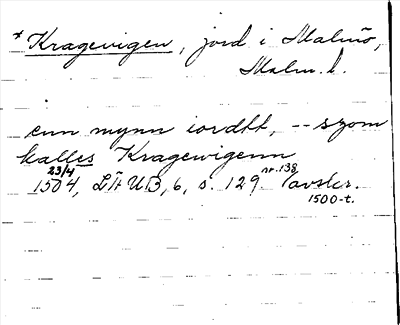 * Kragevigen, jord i Malmö,
Malm. h.
enn mynn iordtt, -- szom
kalles Kragewigenn
23/4 1504, LÄUB, 6, s. 129 nr. 138 avskr.
1500-t.